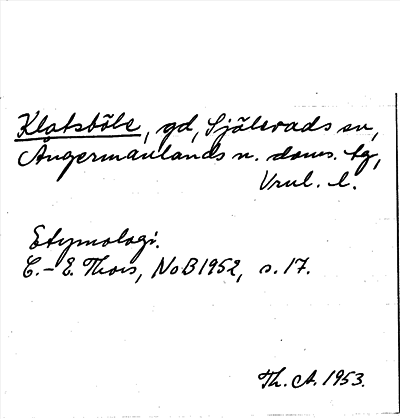 Klatsböle, gd, Själevads sn,
Ångermanlands n. doms. tg,
Vrnl. l.
Etymologi.
C.-E. Thors, NoB 1952, s. 17.
Th. A. 1953.